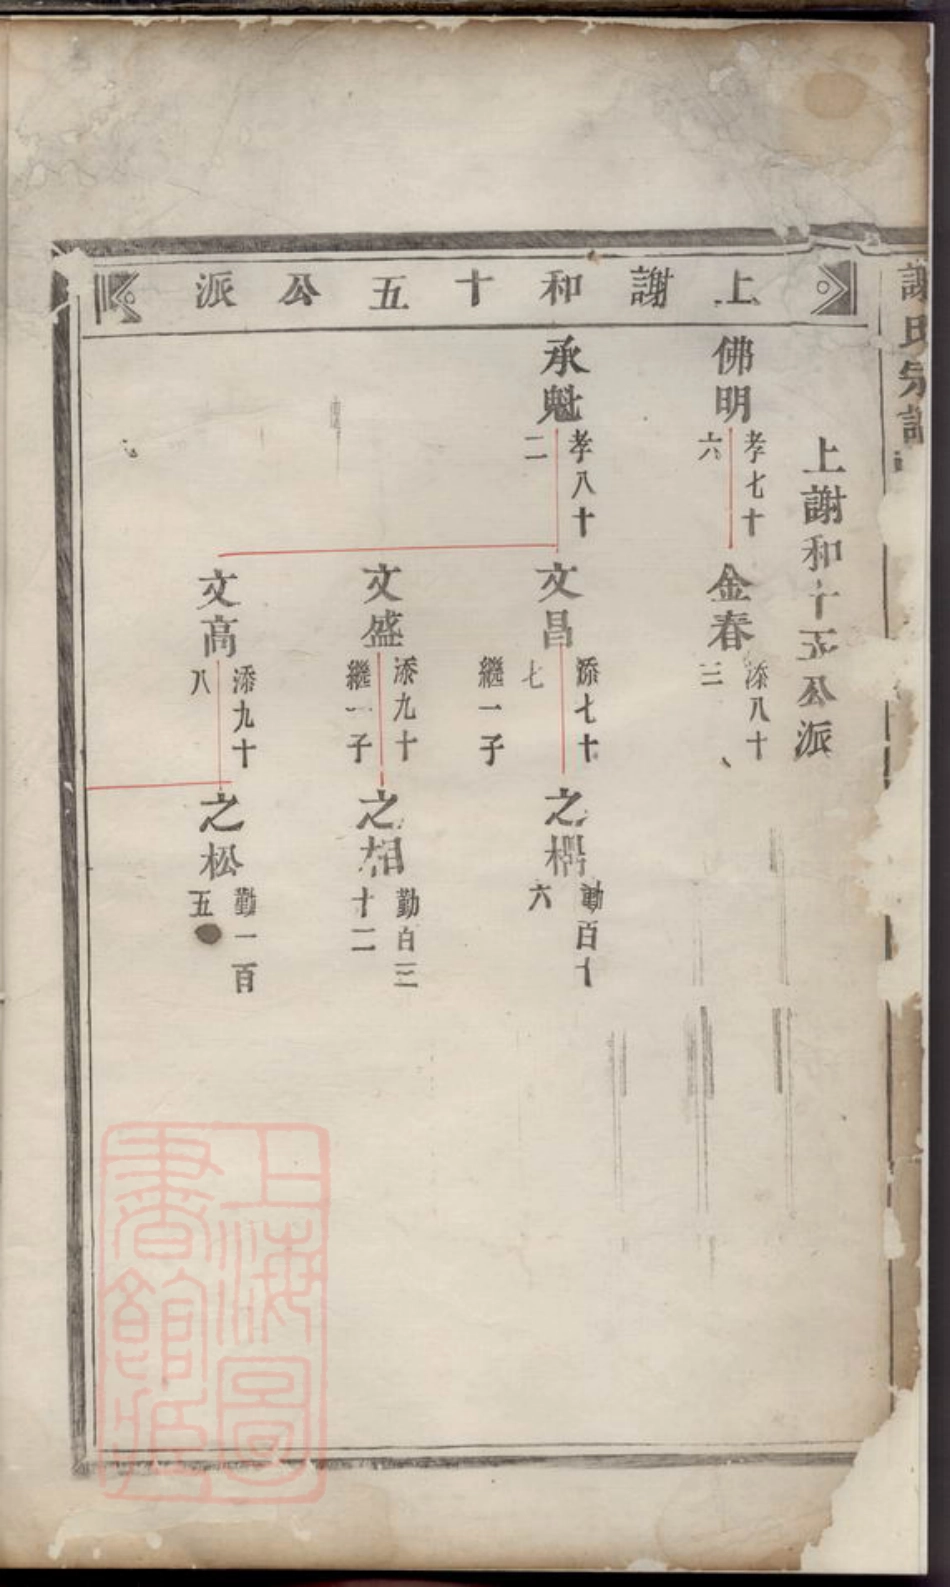 謝氏宗譜
上謝和十五公派
上謝和十五公派
佛明
孝七十
六
金春
添八十
三
承魁
孝八十
二
文昌
添七十
七
繼一子
之楞
勤百十
六
文盛
添九十
繼一子
之相
勤百三
十二
文高
添九十
八
之松
勤一百
五
上海圖
書館藏